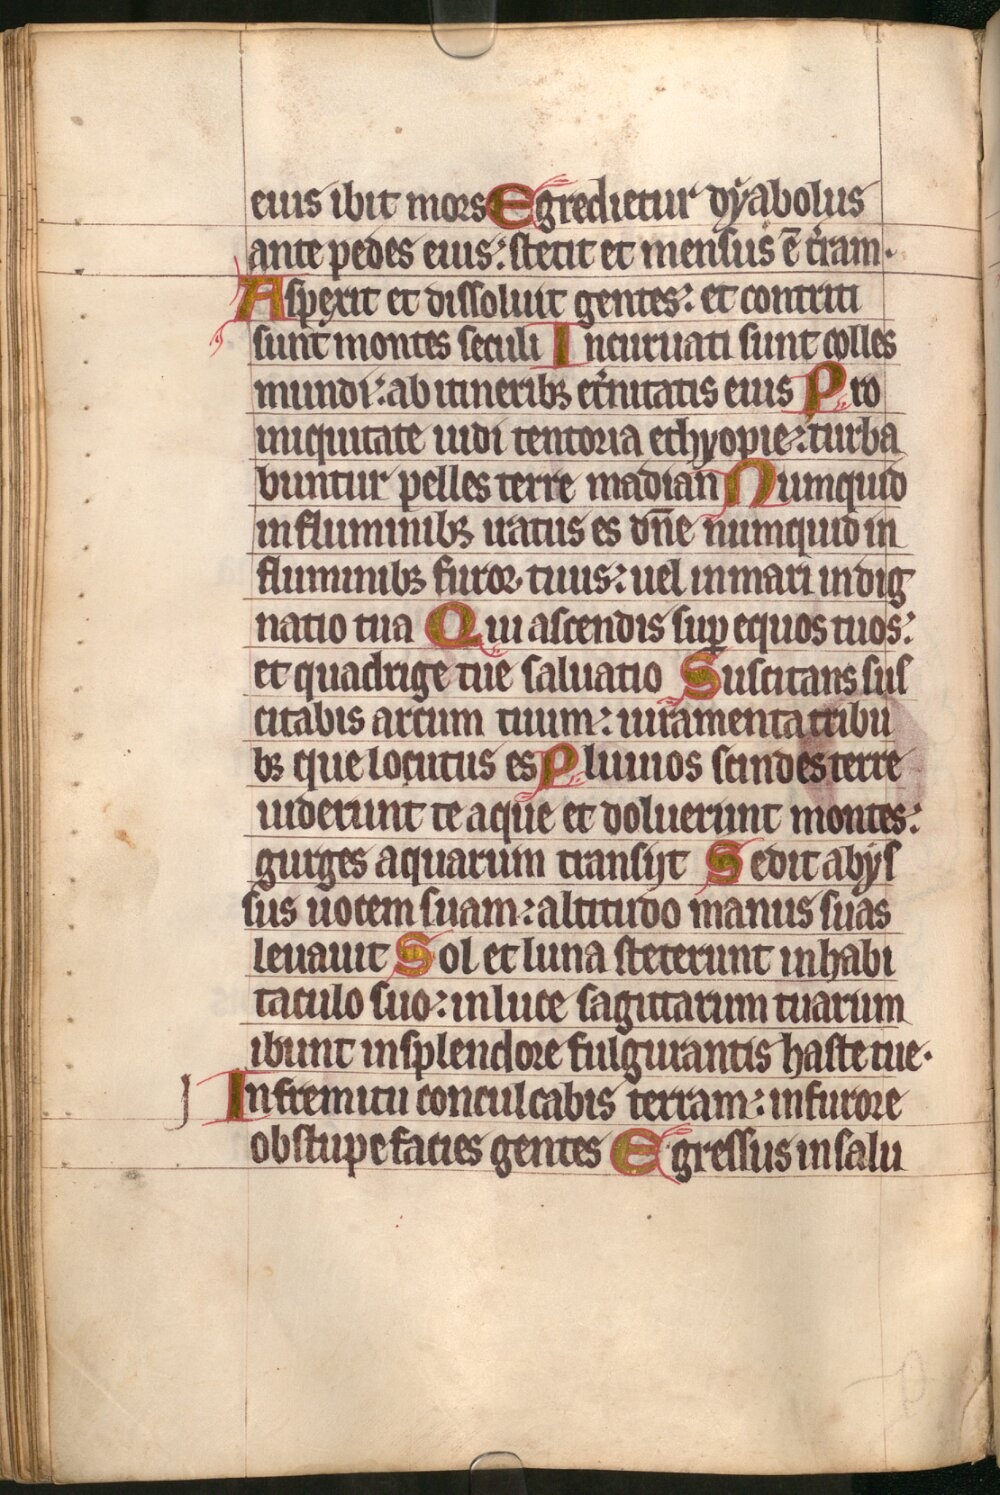 eius ibit mors Egredietur dyabolus
ante pedes eius: stetit et mensus ē t̄ram.
Aspexit et dissoluit gentes: et contriti
sunt montes seculi Incuruati sunt colles
mundi: ab itineribꝫ et̄nitatis eius Pro
iniquitate uidi tentoria ethyopie: turba
buntur pelles terre madian Numquid
in fluminibꝫ iratus es dn̄e numquid in
fluminibꝫ furor tuus: uel in mari indig
natio tua Qui ascendis suꝑ equos tuos:
et quadrige tue saluatio Suscitans sus
citabis arcum tuum: iuramenta tribu
bꝫ que locutus es Pluuios scindes terre
uiderunt te aque et doluerunt montes:
gurges aquarum transijt Sedit abys
sus uocem suam: altitudo manus suas
leuauit Sol et luna steterunt in habi
taculo suo: in luce sagittarum tuarum
ibunt in splendore fulgurantis haste tue.
In fremitu conculcabis terram: in furore
obstupefacies gentes Egressus in salu